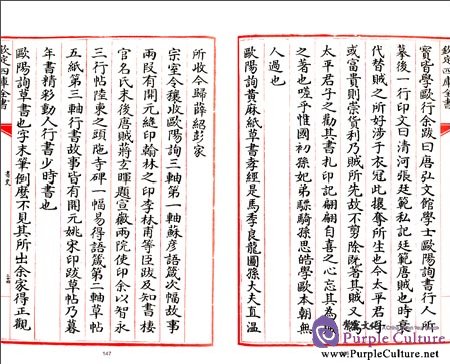 欽定四庫全書
寶皆學歐行余跋曰唐弘文館學士歐陽詢書行人所
慕後一行印文曰清河張廷範私記廷範唐賊也時衰
代替賊之所好涉于衣冠此攘奪所生也今太平君子
或富貴則崇貨利乃賊所先故不剪除既著其賊又為
太平君子之勸其書扎印記翩翩自喜之心忘其為
之著也嗟乎惟國初孫妃弟驥騎孫思皓學歐本朝無
人過也
歐陽詢黃麻紙草書孝經是馬季良龍圖孫大夫直溫
所收今歸薛紹彭家
宗室令穰收歐陽詢三軸第一軸蘇彥語箴次幅故事
兩段有開元縫印翰林之印李林甫等臣跋及知書樓
官名氏末後唐賊蔣玄暉題宣徽兩院使印余以智永
三行帖陸柬之頭陁寺碑一幅易得語箴第二軸草帖
五紙第三軸行書故事皆有開元姚宋印跋草帖乃暮
年書精彩動人行書少時書也
歐陽詢草書也字末筆倒麼不見其所出余家得正觀
欽定四庫全書
書史
147
Purple Culture
www.Purpleculture.net